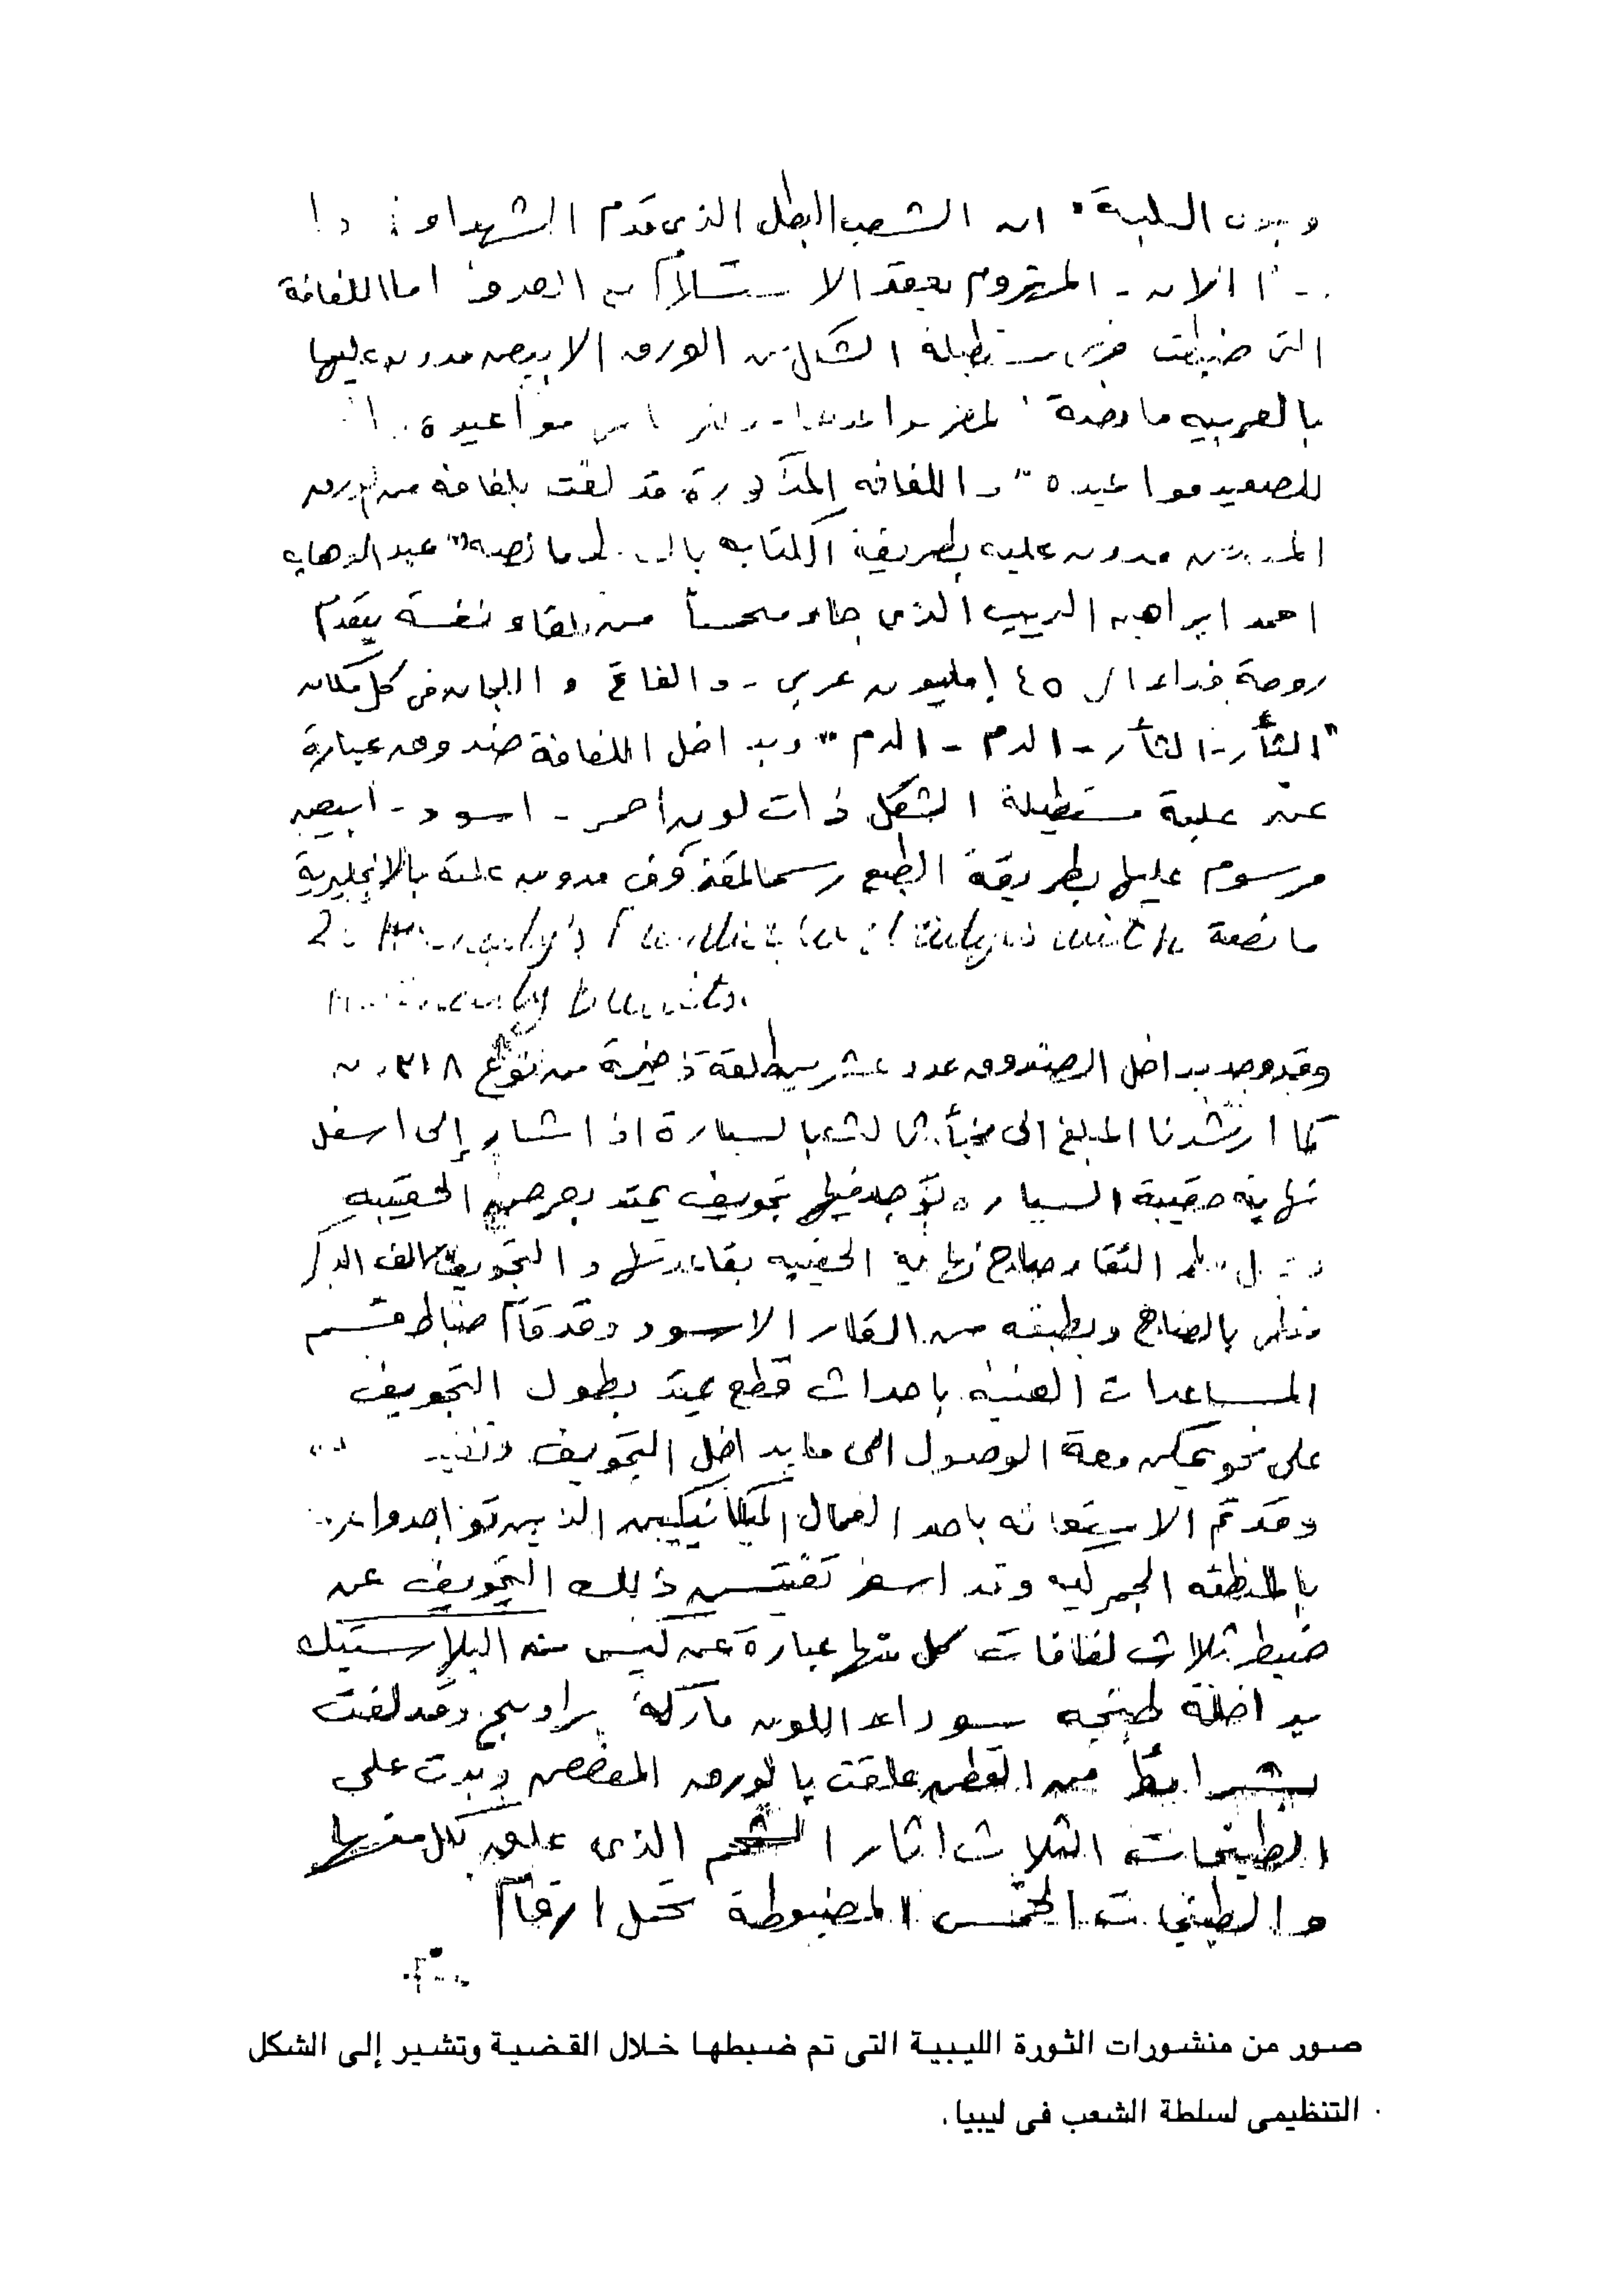 وبدن العلبة " ان الشعب البطل الذى قدم الشهداء
الان - المهزوم بعقد الاستسلام مع العدو اما اللفافة
التى ضبطت فهى مستطيلة الشكل من الورق الابيض مدون عليها
بالعربيه ما نصة مواعيده
للصعيد مواعيده " و اللفافه المذكورة قد لفت بلفافة من ورق
مدون عليه بطريقة الكتابه ما نصه " عبد الوهاب
احمد ابراهيم الذى جاء متحمسا من تلقاء نفسة يقدم
روحة فداءا لـ ١٤٥ مليون عربى - و الفاتح و اللجان فى كل مكان
" الثأر - الثأر - الدم - الدم " وبداخل اللفافة صندوق عبارة
عن علبة مستطيلة الشكل ذات لون احمر - اسود - ابيض
مرسوم عليها بطريقة الطبع رسما لمقذوف مدون علية بالانجليزية
ما نصة with
وقد وجد بداخل الصندوق عدد عشرين طلقة ذخيرة من نوع
كما ارشدنا المبلغ الى مخبأ ثالث بالسيارة اذ اشار إلى اسفل
نهاية حقيبة السياره يوجد فيها تجويف يمتد بعرض الحقيبه
التقاء صاج نهاية الحقيبه بقاعدتها و التجويف سالف الذكر
مغطى بالصاج وبطبقه من القار الاسود وقد قام ضباط قسم
المساعدات الفنيه باحداث قطع يمتد بطول التجويف
على نحو يمكن معة الوصول الى ما بداخل التجويف
وقد تم الاستعانه باحد العمال الميكانيكيين الذين تواجدوا
بالمنطقه الجمركيه وقد اسفر تفتيش ذلك التجويف عن
ضبط ثلاث لفافات كل منها عبارة عن كيس من البلاستيك
بداخلة طبنجه سوداء اللون ماركة براوننج وقد لفت
بشرائط من القطن علقت بالورق المفضض وبدت على
الطبنجات الثلاث اثار الشحم الذى علق بكل منها
والطبنجات الخمس المضبوطة تحمل ارقام
صور من منشورات الثورة الليبية التى تم ضبطها خلال القضية وتشير إلى الشكل
التنظيمى لسلطة الشعب فى ليبيا.